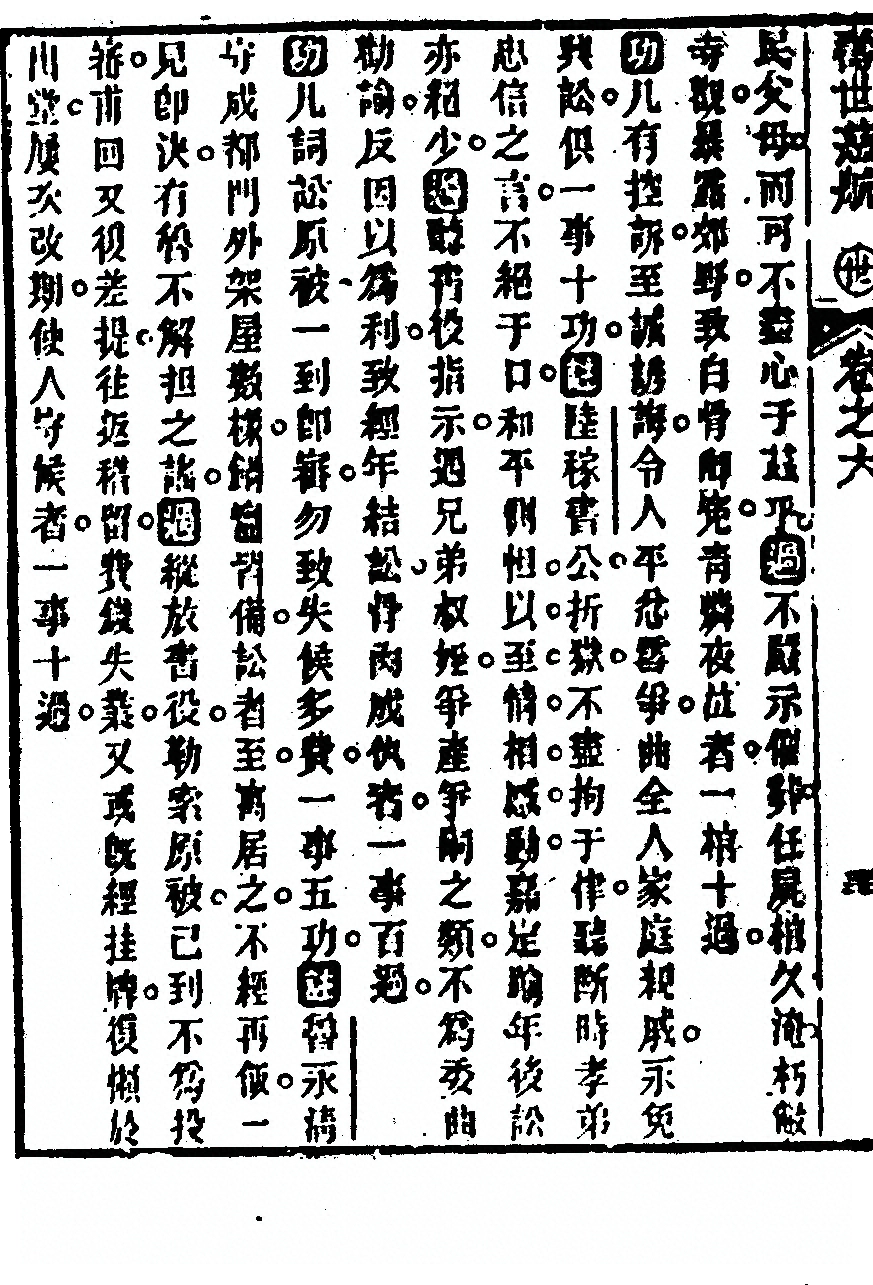 萬世慈航 卷之六
民父母而可不盡心于茲乎過不嚴示催驅任屍棺久淹朽敝
寺觀暴露郊野致白骨啣冤青燐夜泣者一棺十過
功凡有控訴至誠誘誨令人平忿釋爭曲全人家庭親戚永免
興訟俱一事十功述陸稼書公折獄不盡拘于律聽斷時孝弟
忠信之言不絕于口和平惻怛以至情相感動嘉定踰年後訟
亦稀少過聽胥役指示遇兄弟叔姪爭產爭嗣之類不爲委曲
勸諭反因以爲利致經年結訟骨肉成仇者一事百過
功凡詞訟原被一到卽審勿致失候多費一事五功述 永清
守成都門外架屋數椽鍋 皆備訟者至寓居之不經再 一
見卽決有 不解担之謠過縱放書役勒索原被已到不爲投
審甫回又役差提往返稽留費錢失業又或既經挂牌復懶於
出堂屢次改期使人守候者一事十過